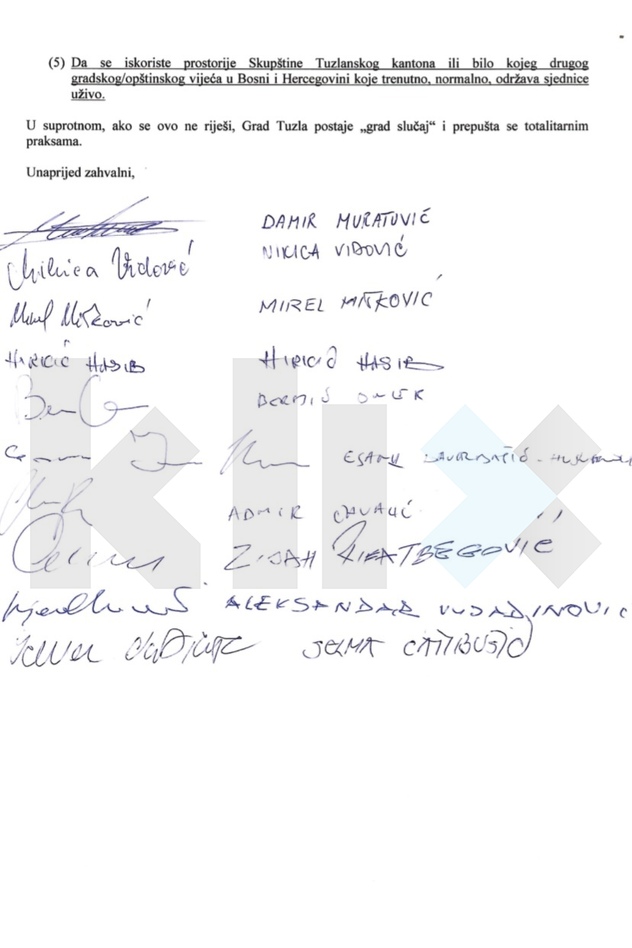 (5) Da se iskoriste prostorije Skupštine Tuzlanskog kantona ili bilo kojeg drugog
gradskog/opštinskog vijeća u Bosni i Hercegovini koje trenutno, normalno, održava sjednice
uživo.
U suprotnom, ako se ovo ne riješi, Grad Tuzla postaje „grad slučaj“ i prepušta se totalitarnim
praksama.
Unaprijed zahvalni,
DAMIR MURATOVIĆ
Nikica Vidović NIKICA VIDOVIĆ
Mirel Mitković MIREL MITKOVIĆ
HIRKIĆ HASIB HIRKIĆ HASIB
ADMIR ČAVALIĆ
ZIJAH RIFATBEGOVIĆ
ALEKSANDAR VUJADINOVIĆ
SELMA ČATIBUŠIĆ
klix